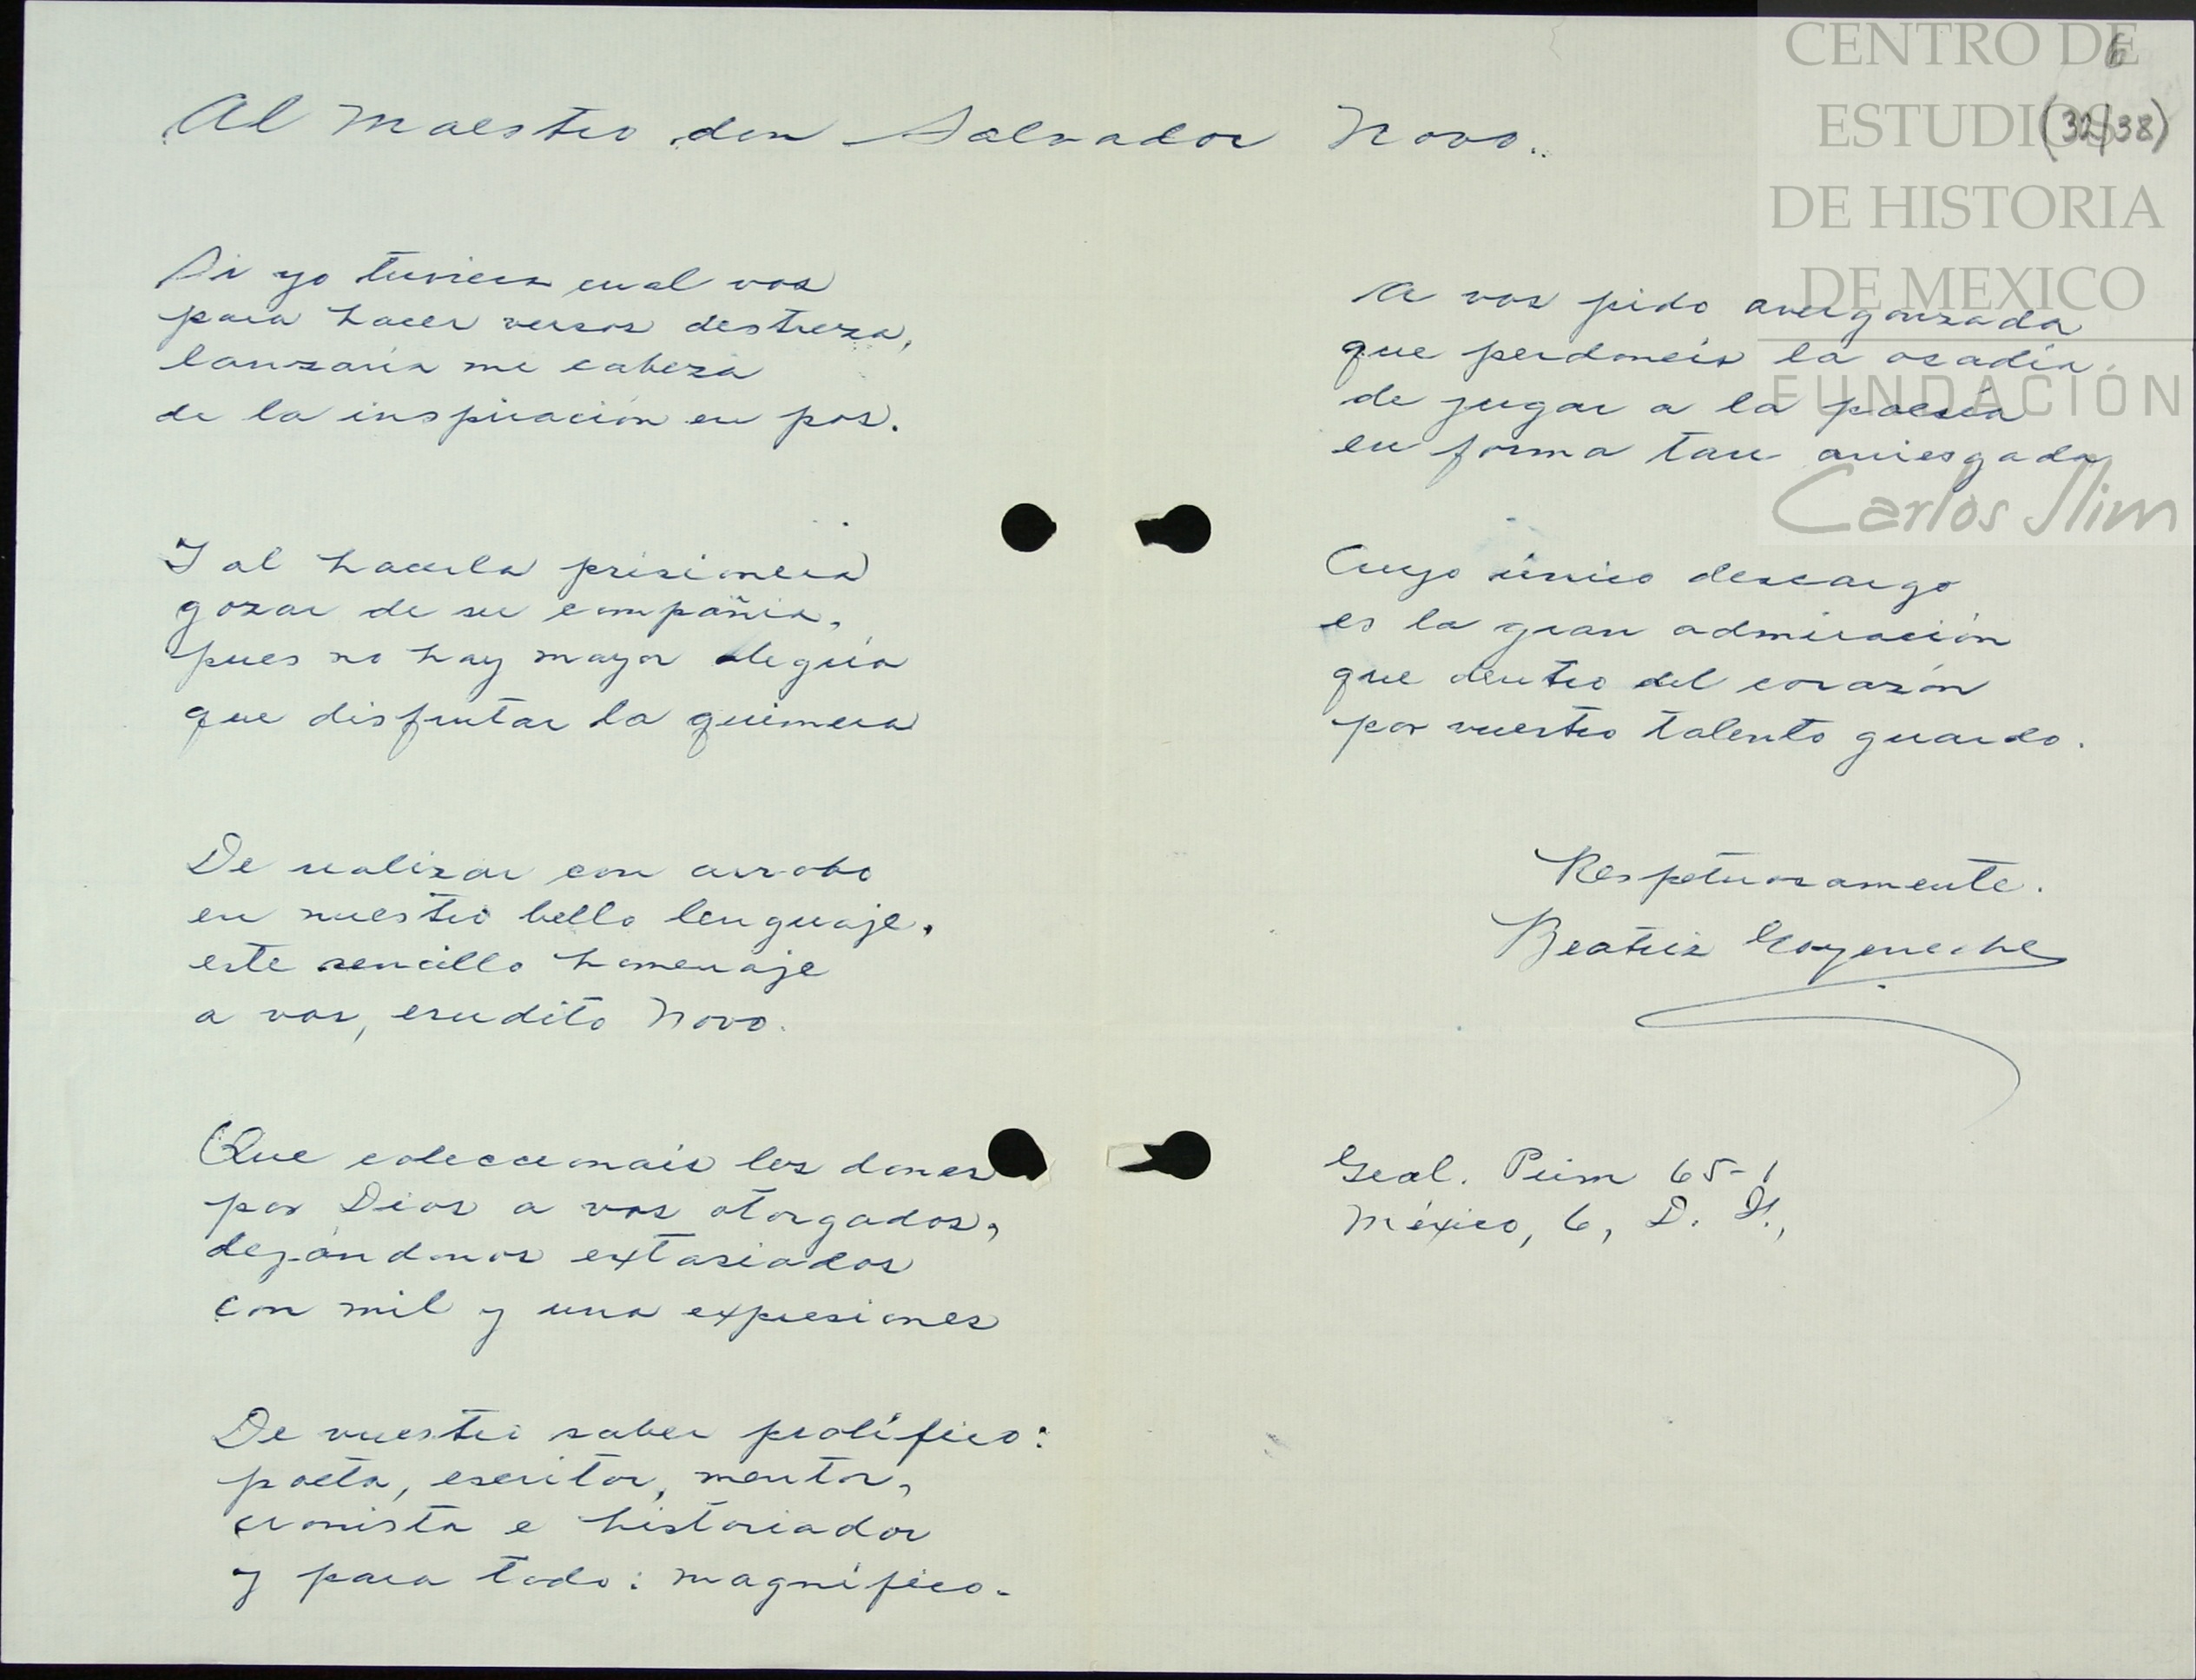 Al Maestro don Salvador Novo.
Si yo tuviera cual vos
para hacer versos destreza,
lanzaría mi cabeza
de la inspiración en pos.
Y al hacerla prisionera
gozar de su compañía,
pues no hay mayor alegría
que disfrutar la quimera
De realizar con arrobo
en nuestro bello lenguaje,
este sencillo homenaje
a vos, erudito Novo.
Que coleccionais los dones
por Dios a vos otorgados,
dejándonos extasiados
con mil y una expresiones
De vuestro saber prolífico:
poeta, escritor, mentor,
cronista e historiador
y para todo: magnífico.
A vos pido avergonzada
que perdoneis la osadía
de jugar a la poesía
en forma tan arriesgada
Cuyo único descargo
es la gran admiración
que dentro del corazón
por vuestro talento guardo.
Respetuosamente.
Beatriz Goyeneche
Gral. Prim 65-1
México, 6, D. F.,
6
(32/38)
CENTRO DE
ESTUDIOS
DE HISTORIA
DE MEXICO
FUNDACIÓN
Carlos Slim